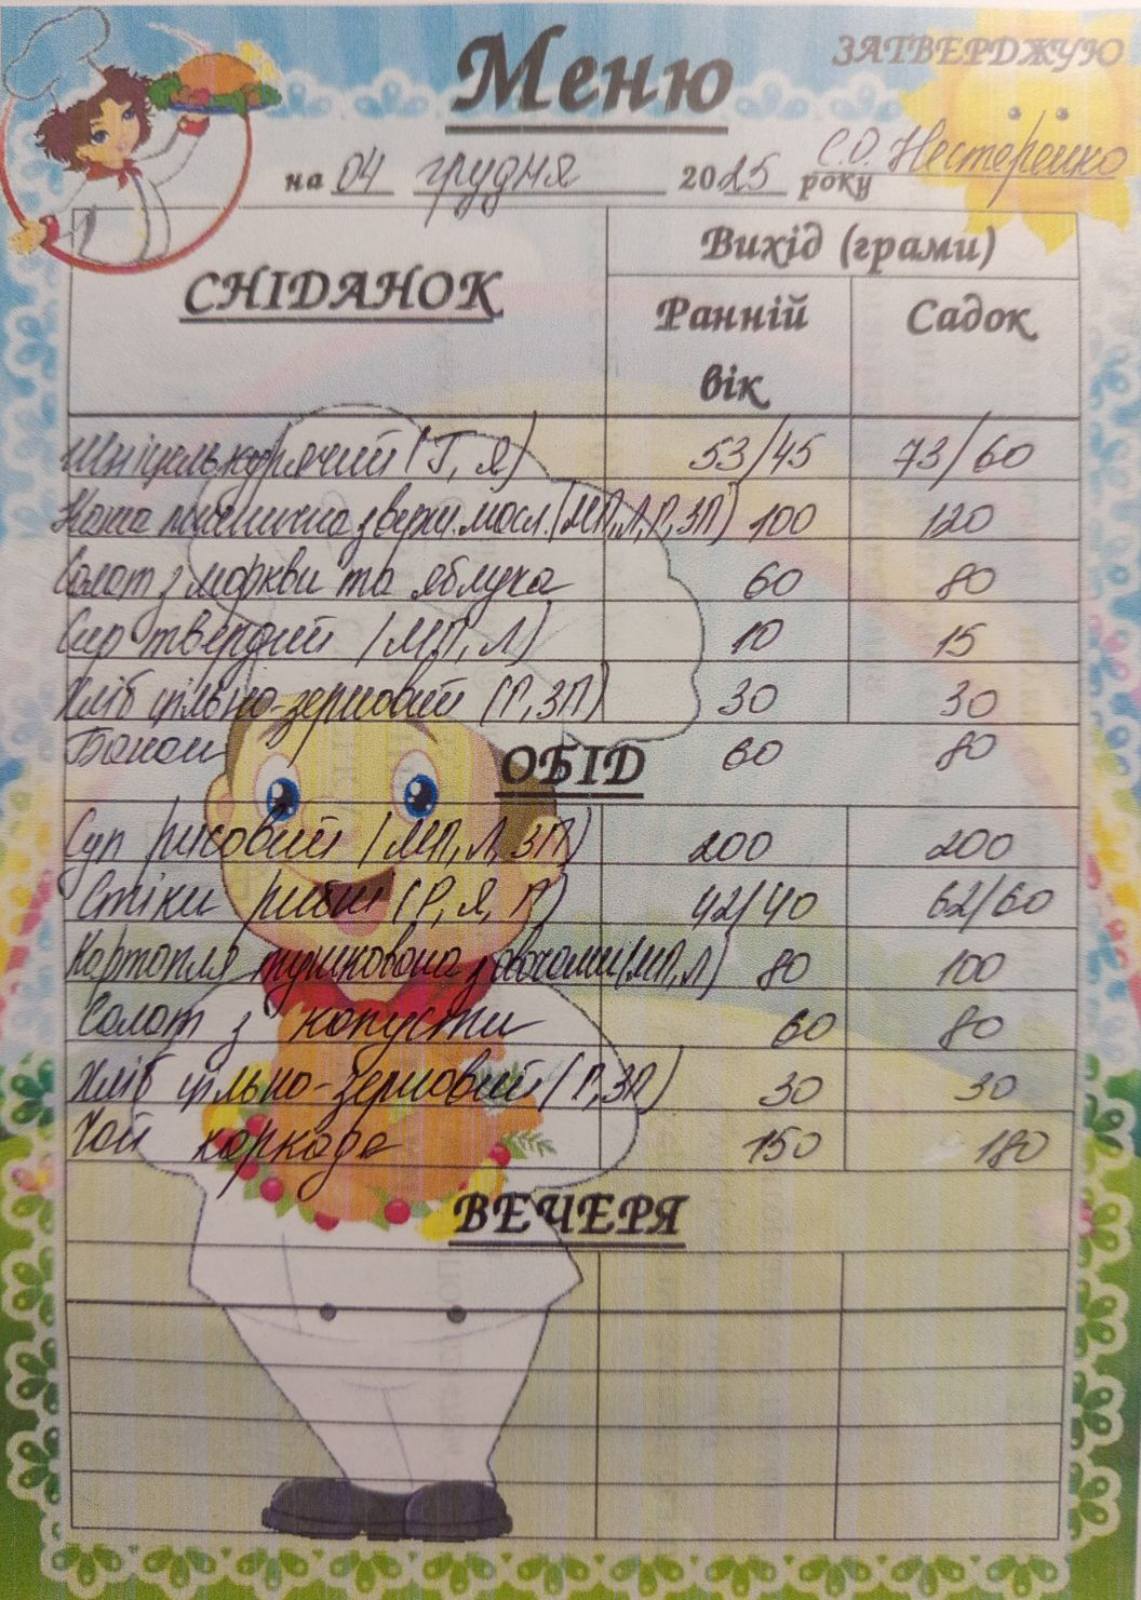 ЗАТВЕРДЖУЮ
Меню
С.О. Нестеренко
на 04 грудня 2025 року
СНІДАНОК
Вихід (грами)
Ранній вік
Садок
Шніцель курячий (Г, Я) 53/45 73/60
Каша пшенична з верш. масл. (МП, Л, Г, ЗП) 100 120
Салат з моркви та яблука 60 80
Сир твердий (МП, Л) 10 15
Хліб цільно-зерновий (Г, ЗП) 30 30
Банан 60 80
ОБІД
Суп рисовий (МП, Л, ЗП) 200 200
Стіки рибні (Р, Я, Г) 42/40 62/60
Картопля тушкована з овочами (МП, Л) 80 100
Салат з капусти 60 80
Хліб цільно-зерновий (Г, ЗП) 30 30
Чай каркаде 150 180
ВЕЧЕРЯ